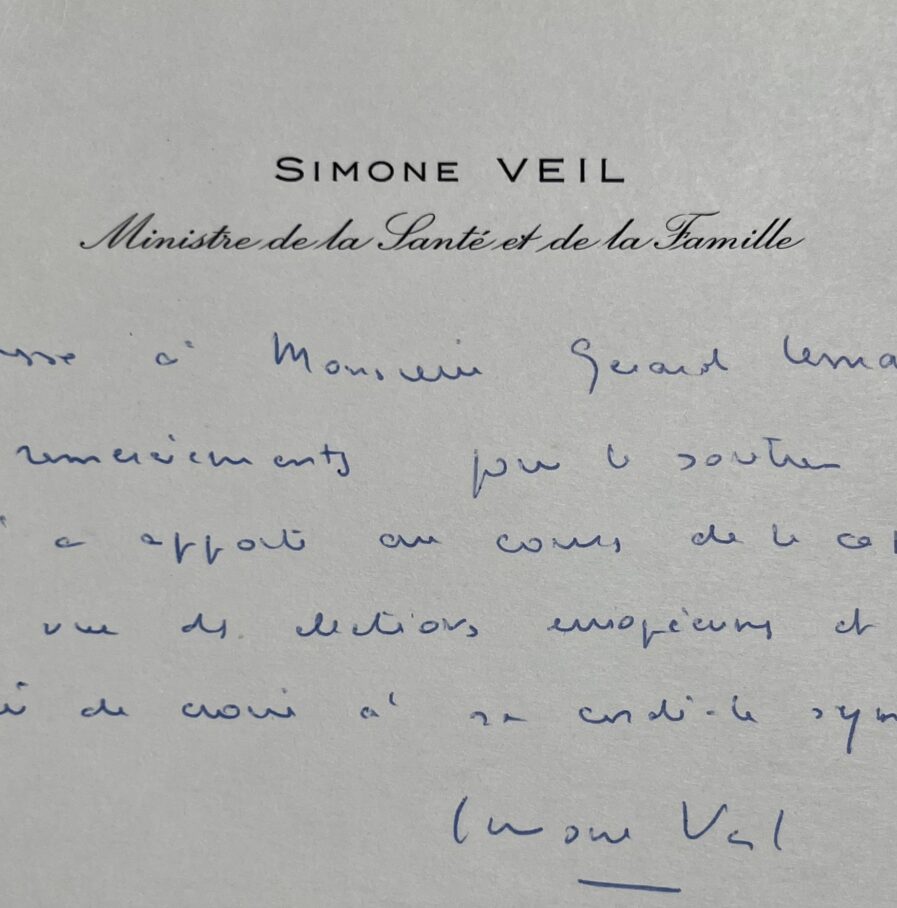 SIMONE VEIL
Ministre de la Santé et de la Famille
à Monsieur Gérard
remerciements pour le soutien
a apporté au cours de la
vue des élections européennes et
de croire à sa cordiale
Simone Veil